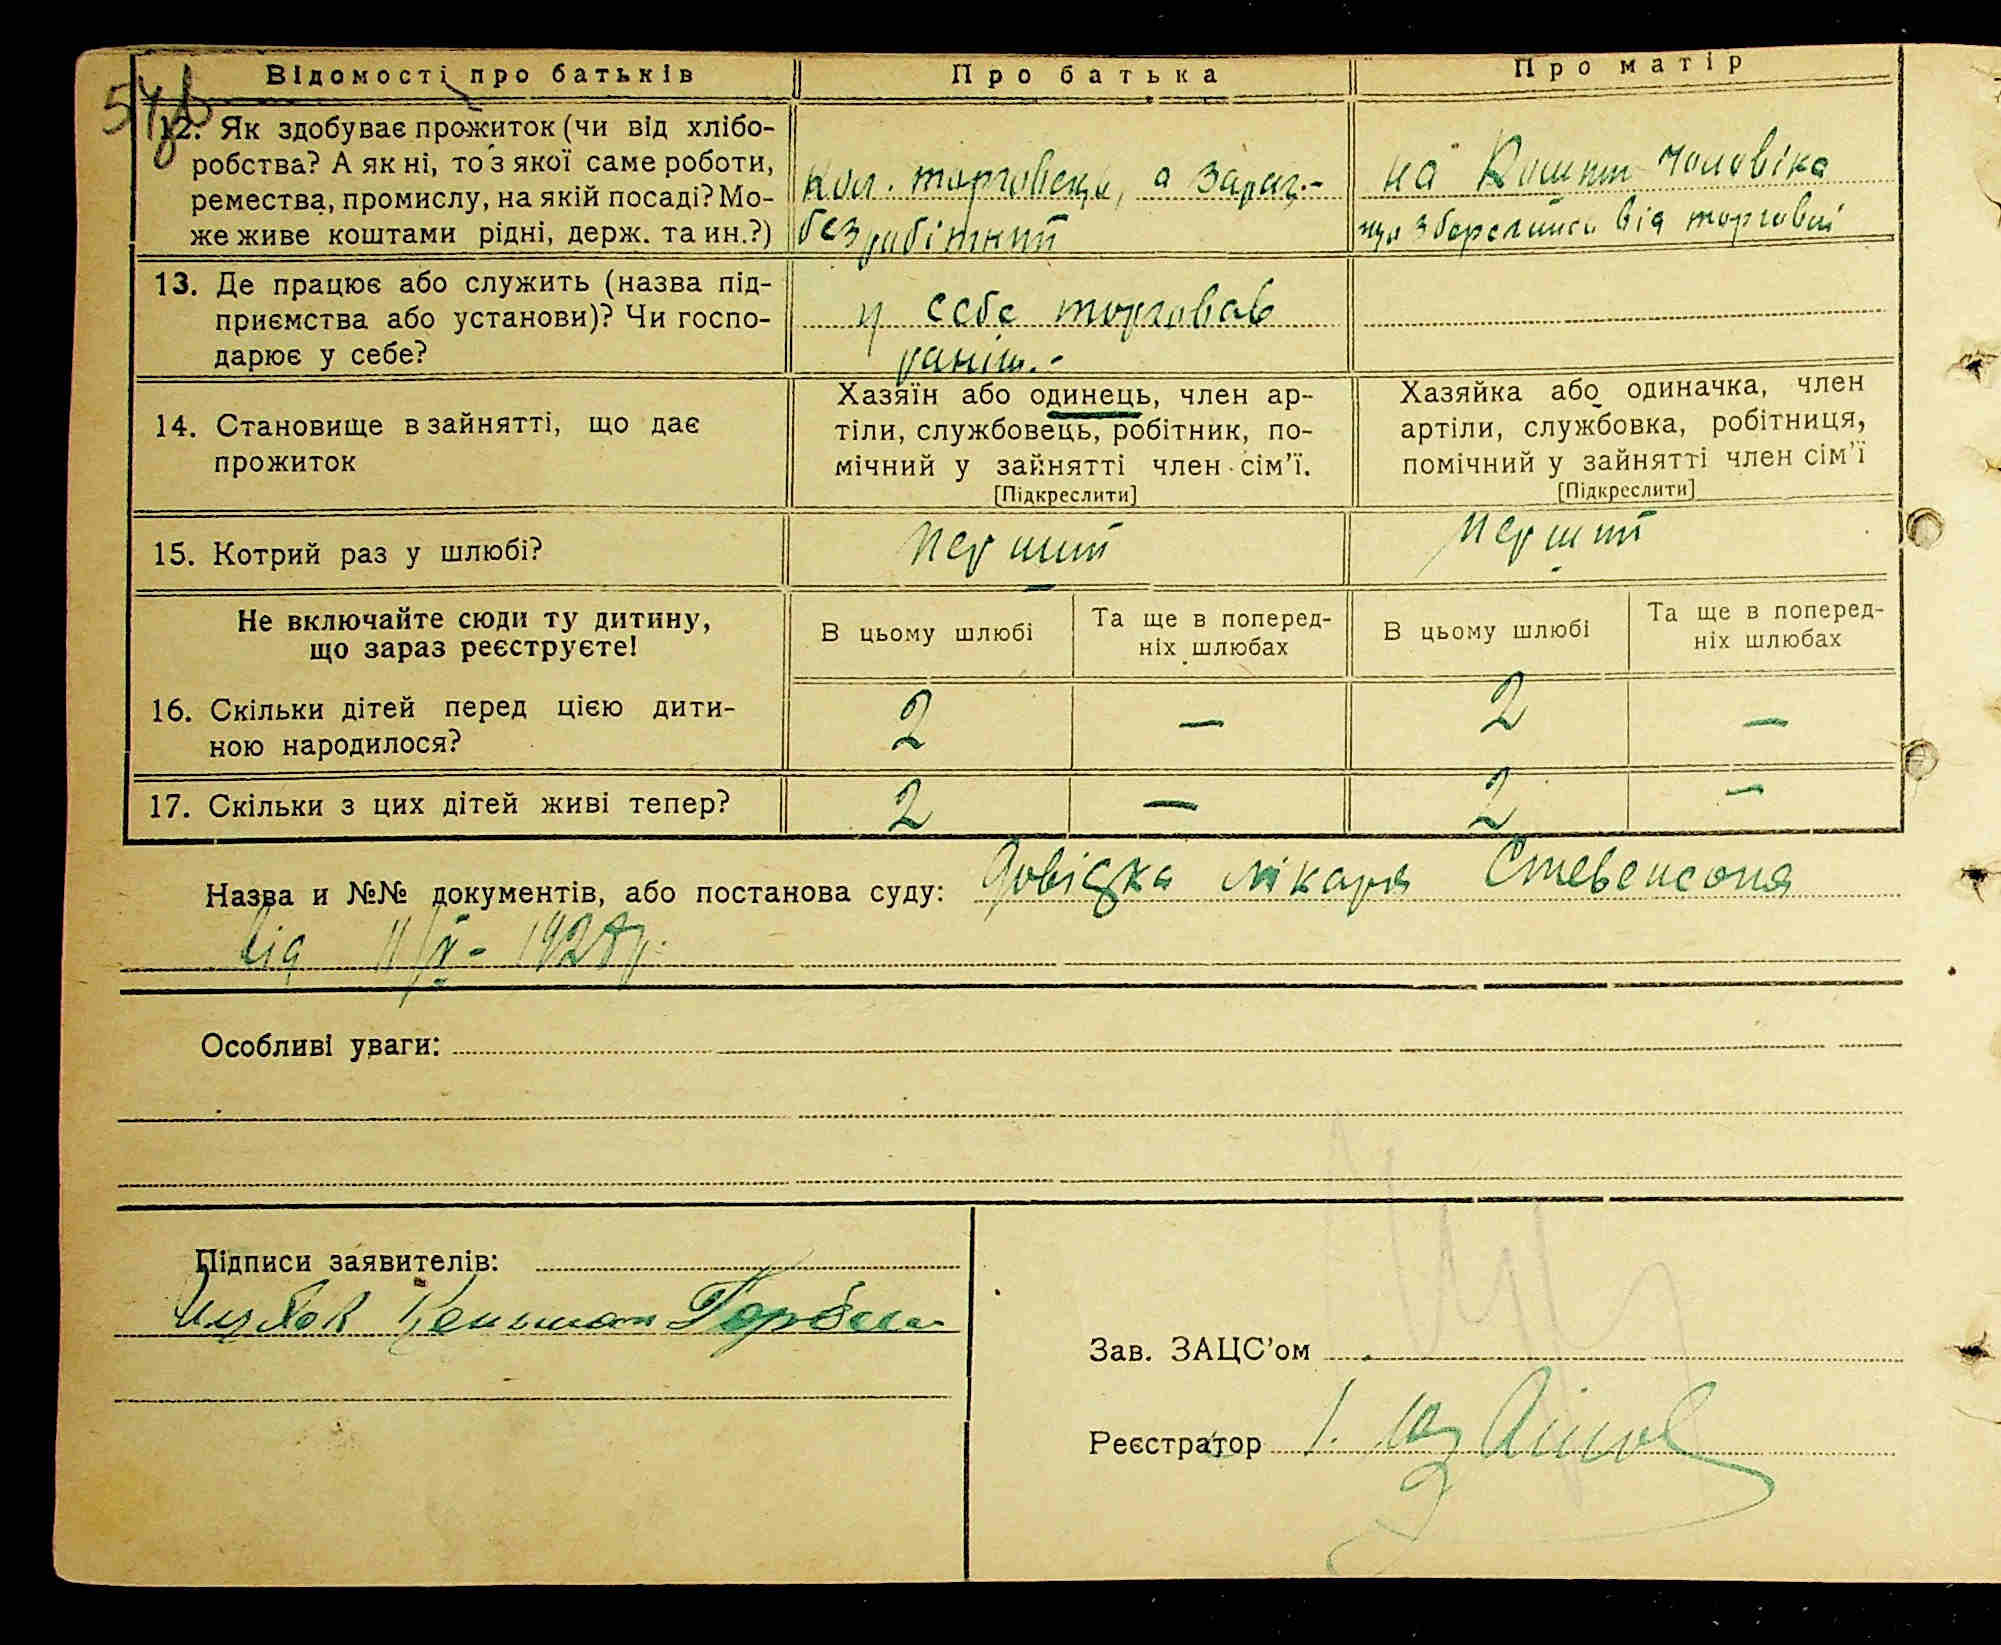 54зв
Відомості про батьків
Про батька
Про матір
12. Як здобуває прожиток (чи від хлібо-
робства? А як ні, то з якої саме роботи,
ремества, промислу, на якій посаді? Мо-
же живе коштами рідні, держ. та ин.?)
кол. торговець, а зараз.-
безробітний
на кошти чоловіка
що збереглись від торговлі
13. Де працює або служить (назва під-
приємства або установи)? Чи госпо-
дарює у себе?
у себе торговав
раніш.-
14. Становище в зайнятті, що дає
прожиток
Хазяїн або одинець, член ар-
тіли, службовець, робітник, по-
мічний у зайнятті член сім'ї.
[Підкреслити]
Хазяйка або одиначка, член
артіли, службовка, робітниця,
помічний у зайнятті член сім'ї
[Підкреслити]
15. Котрий раз у шлюбі?
перший
перший
Не включайте сюди ту дитину,
що зараз реєструєте!
В цьому шлюбі
Та ще в поперед-
ніх шлюбах
В цьому шлюбі
Та ще в поперед-
ніх шлюбах
16. Скільки дітей перед цією дити-
ною народилося?
2
—
2
—
17. Скільки з цих дітей живі тепер?
2
—
2
—
Назва и №№ документів, або постанова суду: Довідка лікаря Стевенсона
від 11/V - 1928 р.
Особливі уваги:
Підписи заявителів:
Зав. ЗАЦС'ом
Реєстратор